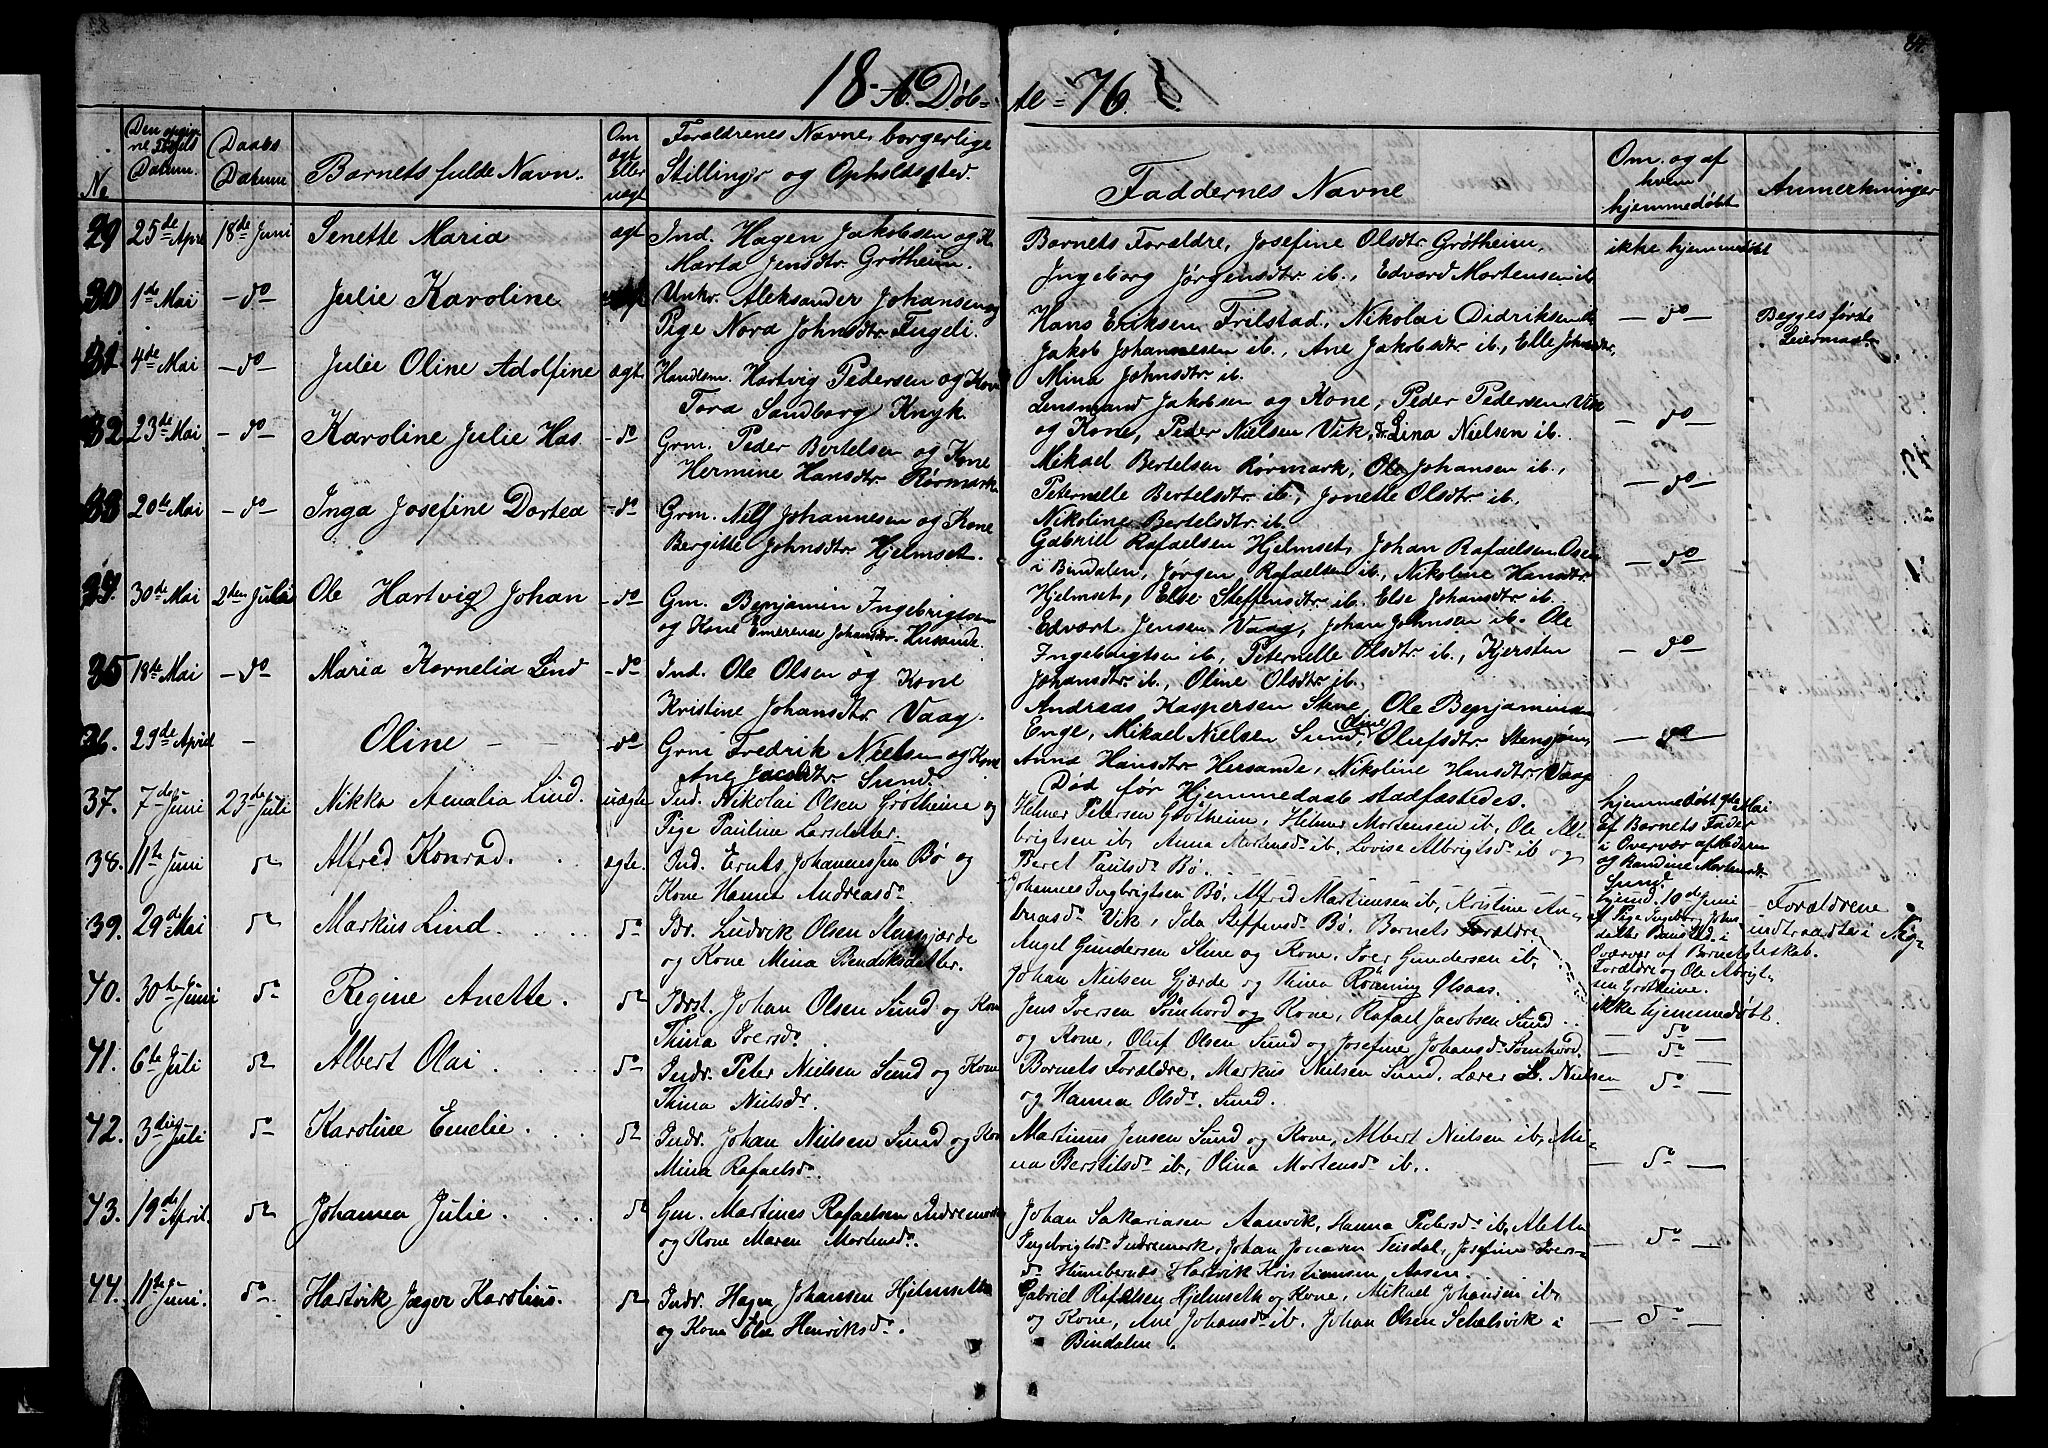 18 - A. Døb= te = 76.
No
Den opgiv-
ne Fødsels
Datum.
Daabs
Datum
Barnets fulde Navn.
Om
ægt
eller
uægt
Forældrenes Navne, borgerlige
Stilling og Opholdssted.
Faddernes Navne
Om og af
hvem
hjemmedøbt
Anmerkninger
29 25de April 18de Juni Senette Maria ægt Ind. Hagen Jakobsen og K.
Marta Jensdtr Grøtheim.
Barnets Forældre, Josefine Olsdtr Grøtheim,
Ingeborg Jørgensdtr ib., Edvard Mortensen ib
ikke hjemmedøbt
30 1de Mai - do Julie Karoline Unkr. Aleksander Johansen og
Pige Nora Johnsdtr Fugeli.
Hans Eriksen Frilstad, Nikolai Didriksen ib
Jakob Johannesen ib., Ane Jakobsdtr ib., Elle Johnsdtr,
Mina Johnsdtr ib.
- do -
Begges første
Leiermaal
31 4de Mai - do - Julie Oline Adolfine ægt. Handlsm. Hartvig Pedersen og Kone
Tora Sandborg Knyk.
Lensmand Jakobsen og Kone, Peder Pedersen Vik
og Kone, Peder Nielsen Vik, Lina Nielsen ib.
- do -
32 23de Mai - do - Karoline Julie Has - do Grm. Peder Bertelsen og Kone
Hermine Hansdtr Rørmark
Mikael Bertelsen Rørmark, Ole Johansen ib.,
Peternelle Bertelsdtr ib., Jonette Olsdtr ib.,
Nikoline Bertelsdtr ib.
- do -
33 20de Mai - do - Inga Josefine Dortea - do Grm. Nils Johannesen og Kone
Bergitte Johnsdtr Hjelmset.
Gabriel Rafaelsen Hjelmset, Johan Rafaelsen Osen
i Bindalen, Jørgen Rafaelsen ib., Nikoline Hansdtr
Hjelmset, Else Steffensdtr ib. Else Johansdtr ib.
- do -
34. 30de Mai 2den Juli Ole Hartvig Johan - do Gm. Benjamin Ingebrigtsen
og Kone Emerense Johansdtr Husande.
Edvart Jensen Vaag, Johan Johnsen ib. Ole
Ingebrigtsen ib., Peternelle Olsdtr ib., Kjersten
Johansdtr ib., Oline Olsdtr ib.
- do -
35 18de Mai - do Maria Kornelia Lind - do Ind. Ole Olsen og Kone
Kristine Johansdtr Vaag.
Andreas Kaspersen Stene, Ole Benjaminsen
Enge, Mikael Nielsen Sund, Oline Olufsdtr
Anna Hansdtr Hersande, Nikoline Hansdtr Vaag
- do -
36. 29de April - Oline - - - do Grm Fredrik Nielsen og Kone
Ane Jacobdtr Sund.
Død før Hjemmedaab stadfæstedes.
37. 7de Juni 23de Juli Nikka Amalia Lind. uægte Ind. Nikolai Olsen Grøtheim og
Pige Pauline Larsdatter.
Helmer Petersen Grøtheim, Helmer Mortensen ib, Ole Al-
brigtsen ib, Anna Mortensd. ib. Lovise Albrigtsd. ib og
Beret Paulsd. Bø.
hjemmedøbt Mai
af Barnets Fader
i Overvær af Mod
og Randine Mortensdtr
Sund.
38. 11te Juni do Alfred Konrad. ægte. Ind. Ernts Johannessen Bø og
Kone Hanna Andreasd.
Johannes Ingbrigtsen Bø, Alfred Martinusen ib, Kristine An-
dreasd. Vik, Ida Steffensd. Bø. Barnets Forældre
hjemd. 10de Juni
af Pige Ingeborg Johns-
datter i
Overvær af Barnets
Forældre og Ole Abrigt-
sen Grøtheim.
Forældrene
indtraadte i Æg-
teskab.
39. 29de Mai do Markus Lind. do Idr. Ludvik Olsen Stensgjærde
og Kone Mina Bendiksdatter.
Angel Gundersen Stene og Kone, Iver Gundersen ib,
Johan Nielsen Gjærde og Thina Rönning Olsaas.
ikke hjemmedøbt.
40. 30te Juni do Regine Anette. do Idrst. Johan Olsen Sund og Kone
Thina Iversd.
Jens Iversen Somhovd og Kone, Rafael Jacobsen Sund
og Kone, Oluf Olsen Sund og Josefine Johansd. Somhovd.
- do -
41. 6te Juli do Albert Olai do Indr. Peter Nielsen Sund og Kone
Thina Nielsd.
Barnets Forældre, Markus Nielsen Sund, Lærer L. Nielsen
og Hanna Olsd. Sund.
- do -
- do -
42. 3die Juli do Karoline Emelie. do Indr. Johan Nielsen Sund og Kone
Mina Rafaelsd.
Martinus Jensen Sund og Kone, Albert Nielsen ib, Mi-
na Berstilsd. ib, Olina Mortensd. ib.
- do -
43. 19de April. do Johanna Julie. do Gm. Martines Rafaelsen Indremark
og Kone Maren Mortensd.
Johan Sakariasen Aanvik, Hanna Pedersd. ib, Aletta
Ingebrigtsd. Indremark, Johan Jonasen Teisdal, Josefine Ivers-
d. Hartvik Kristiansen Aasen.
- do -
44. 11te Juni. do Hartvik Jæger Karolius. do Indr. Hagen Johansen Hjelmseth
og Kone Else Henriksd.
Gabriel Rafaelsen Hjelmseth og Kone, Mikael Johansen ib,
og Kone, Ane Johansd. ib. Johan Olsen Schelsvik i
Bindalen.
- do -